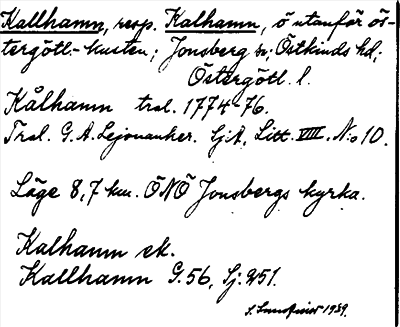 Kallhamn, resp. Kalhamn, ö utanför ös-
tergötl.-kusten; Jonsberg sn; Östkinds hd;
Östergötl. l.
Kålhamn tral. 1774-76.
Tral. G. A. Lejonanker. SjA, Litt. VIII, N:o 10.
Läge 8,7 km. ÖNÖ Jonsbergs kyrka.
Kalhamn ek.
Kallhamn G. 56, Sj: 251.
1939.